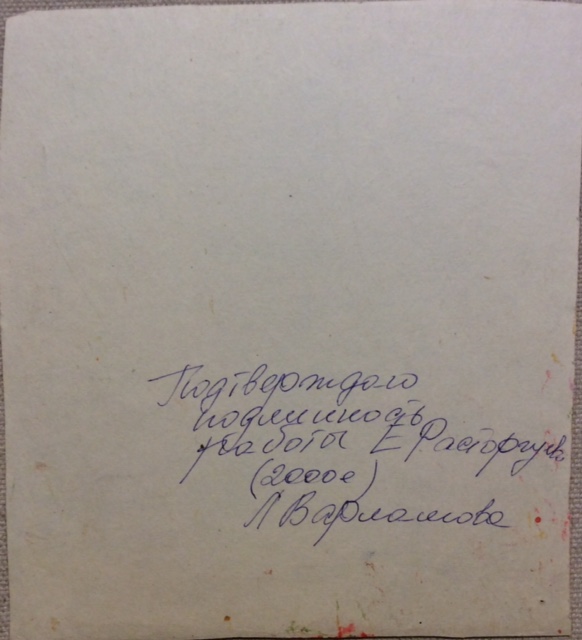 Подтверждаю
подлинность
работы Е Расторгуева
(2000е)
Л Варламова